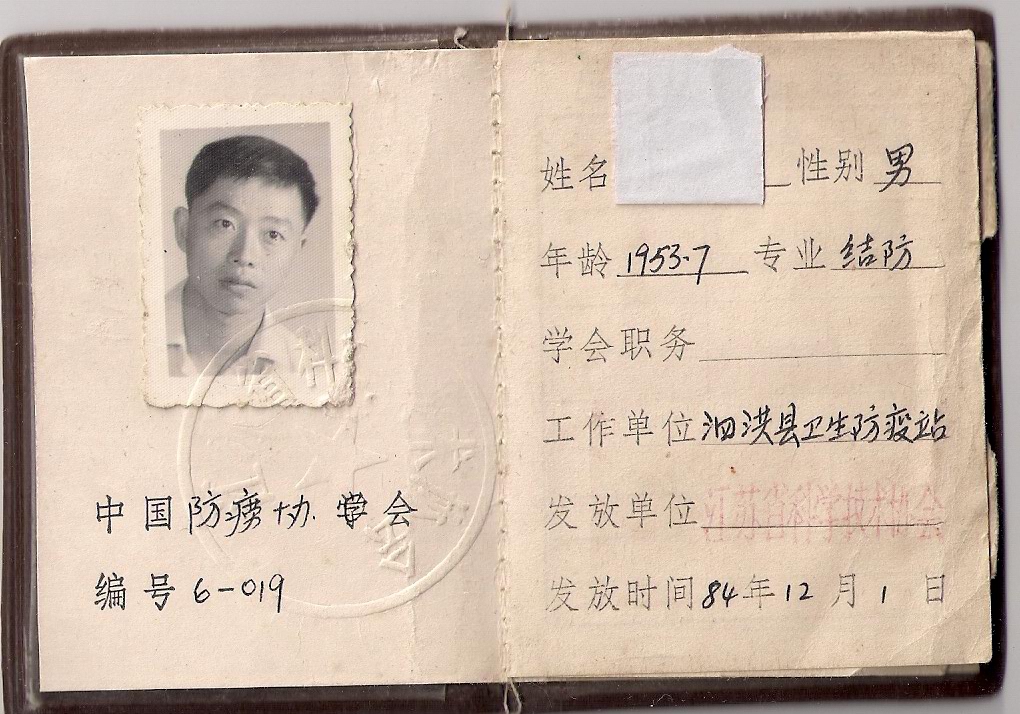 中国防痨协学会
编号 6-019
姓名 性别 男
年龄 1953.7 专业 结防
学会职务
工作单位 泗洪县卫生防疫站
发放单位 江苏省科学技术协会
发放时间 84年12月1日